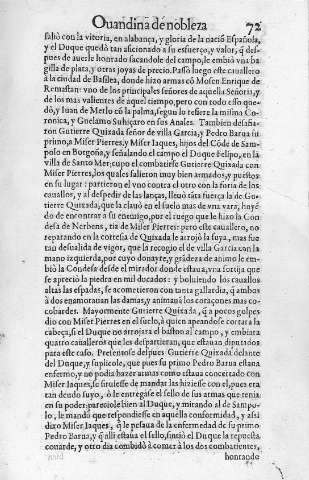 Ouandina de nobleza 72
salio con la vitoria, en alabança, y gloria de la nació Española,
y el Duque quedò tan aficionado a su esfuerço, y valor, q̃ des-
pues de auerle honrado sacandole del campo, le embiò vna ba
gilla de plata, y otras joyas de precio. Passò luego este cauallero
à la ciudad de Basilea, donde hizo armas cõ Mosen Enrique de
Remastan: vno de los principales señores de aquella Señoria, y
de los mas valientes de aquel tiempo, pero con todo esso que-
dò, y Iuan de Merlo cõ la palma, segun lo refiere la misma Co-
ronica, y Guelamo Suhiçaro en sus Anales. Tambien desafia-
ron Gutierre Quixada señor de villa Garcia, y Pedro Barua su
primo, à Miser Pierres, y Miser Iaques, hijos del Cõde de Sam-
polo en Borgoña, y señalando el campo el Duque Felipo, en la
villa de Santo Mer, cupo el combatirse Gutierre Quixada con
Miser Pierres, los quales salieron muy bien armados, y puestos
en su lugar: partieron el vno contra el otro con la furia de los
cauallos, y al despedir de las lanças, lleuò tãta fuerça la de Gu-
tierre Quixada, que la clauò en el suelo mas de vna vara, huyẽ
do de encontrar a su enemigo, por el ruego que le hizo la Con
desa de Nerbens, tia de Miser Pierres: pero este cauallero, no
reparando en la cortesia de Quixada le arrojò la suya, mas fue
tan desualida de vigor, que la recogio el de villa Garcia con la
mano izquierda, por cuyo donayre, y grãdeza de animo le em
biò la Condesa desde el mirador donde estaua, vna sortija que
se apreciò la piedra en mil dorados: y boluiendo los cauallos
altas las espadas, se acometieron con tanta gallardia, q̃ ambos
à dos enamorauan las damas, y animauã los coraçones mas co-
cobardes. Mayormente Gutierre Quixada, q̃ a pocos golpes
dio con Miser Pierres en el suelo, à quien apeandose cortara la
cabeça, si el Duque no arrojara el baston al campo, y embiara
quatro caualleros que les despartieran, que estauan diputados
para este caso. Presentose despues Gutierre Quixada delante
del Duque, y suplicole, que pues su primo Pedro Barua estaua
enfermo, y no podia hazer armas como estaua concertado con
Miser Iaques, se siruiesse de mandar las hiziesse con el, pues era
tan deudo suyo, ò le entregasse el sello de sus armas que tenia
en su poder: pareciole bien al Duque, y mirando al de Sampo-
lo, le mandò que respondiesse en aquella conformidad, y assi
dixo Miser Iaques, q̃ le pesaua de la enfermedad de su primo
Pedro Barua, y q̃ alli estaua el sello, sintiò el Duque la repuesta
couarde, y otro dia combidò à comer à los dos combatientes,
honrando